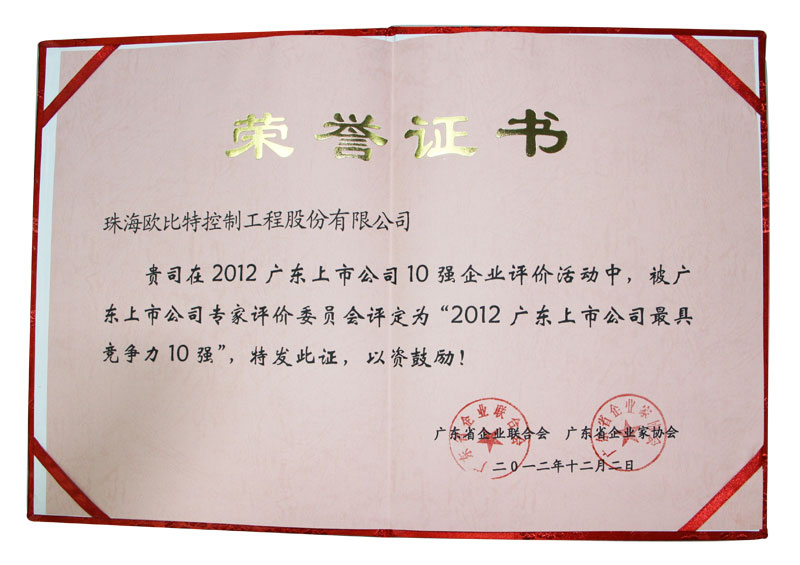 荣誉证书
珠海欧比特控制工程股份有限公司
贵司在2012广东上市公司10强企业评价活动中，被广
东上市公司专家评价委员会评定为“2012广东上市公司最具
竞争力10强”，特发此证，以资鼓励！
广东省企业联合会 广东省企业家协会
二〇一二年十二月二日
广东省企业联合会
广东省企业家协会